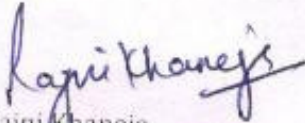 Rajni Khaneja
Rajni Khaneja